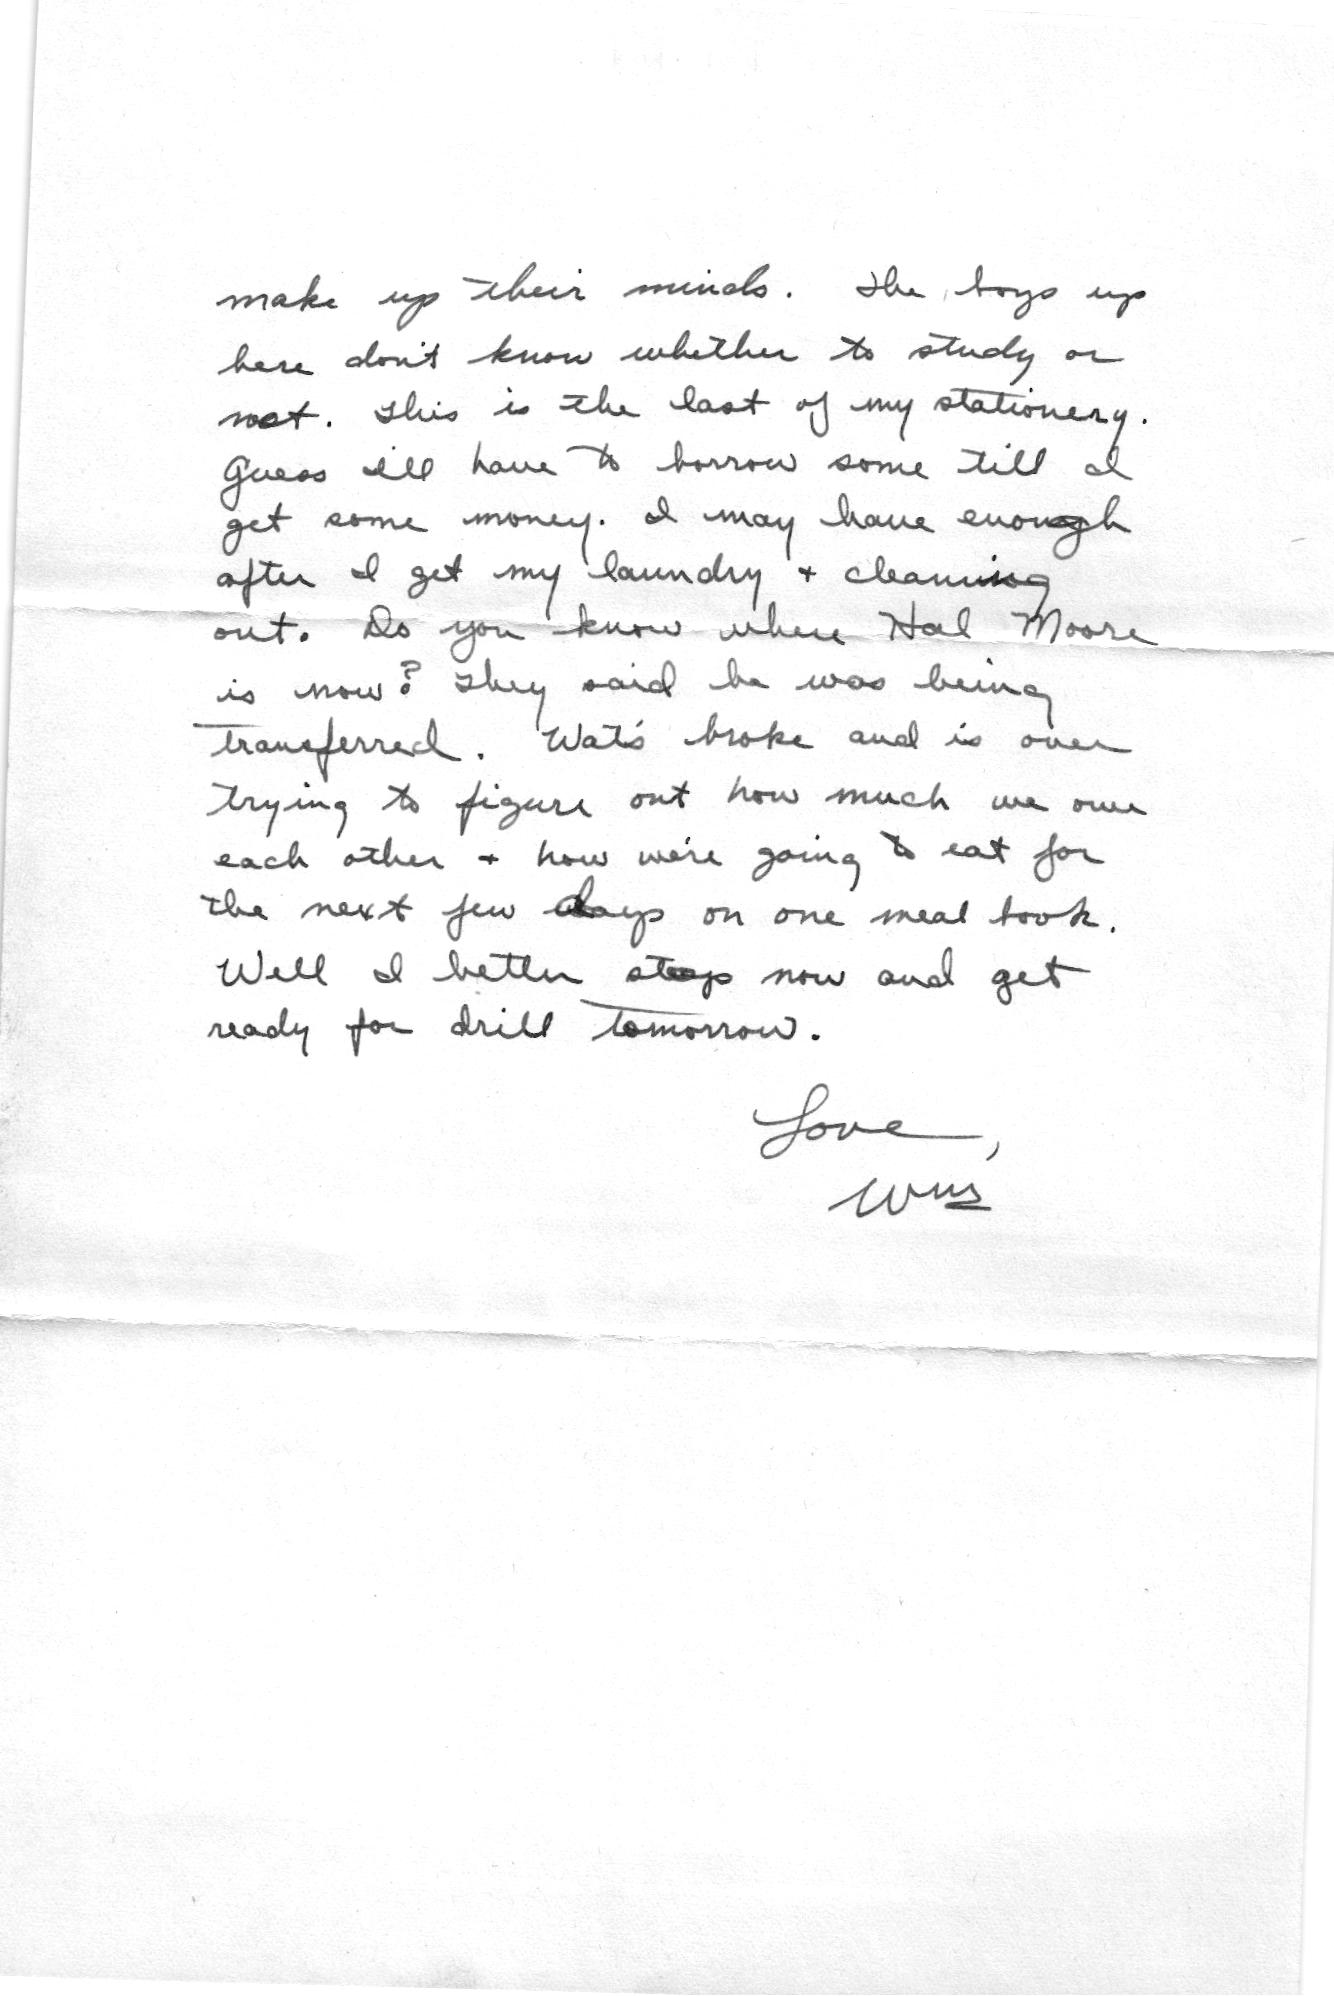 make up their minds. The boys up
here don't know whether to study or
not. This is the last of my stationery.
Guess I'll have to borrow some till I
get some money. I may have enough
after I get my laundry + cleaning
out. Do you know where Hal Moore
is now? They said he was being
transferred. Wat's broke and is over
trying to figure out how much we owe
each other + how we're going to eat for
the next few days on one meal book.
Well I better stop now and get
ready for drill tomorrow.
Love,
Wm